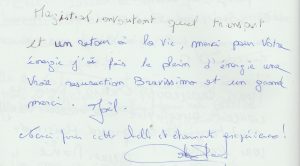 Magistral, envoûtant quel transport
et un retour à la vie, merci pour votre
énergie j'ai fais le plein d'énergie une
vraie resurection Bravissimo et un grand
merci. Joël.
Merci pour cette belle et étonnante expérience!